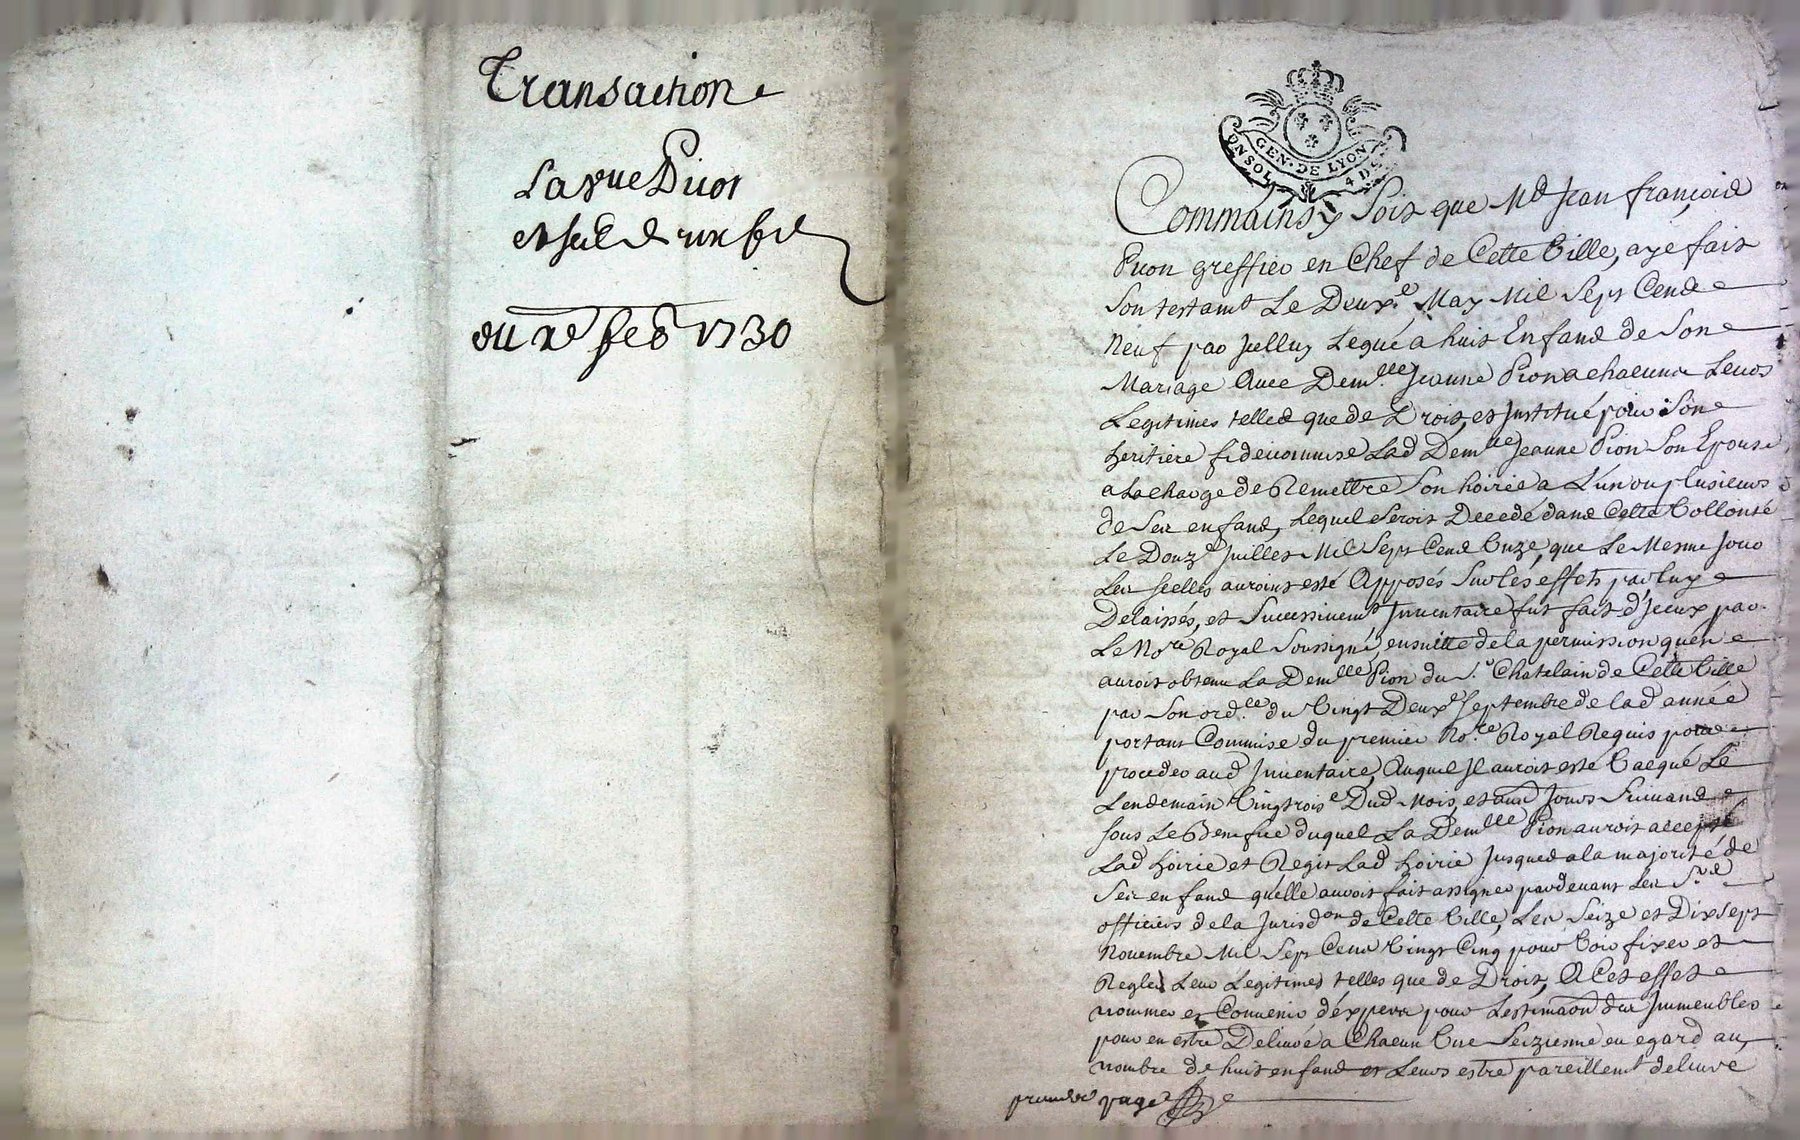 Transaction
La vue Pion
du feb 1730
GEN · DE LYON
4 DS
Comm ainsy Soit que Mr Jean françois
Pion greffier en Chef de Cette Ville, aye fait
Son testamt Le Deuxe May Mil Sept Cend
Neuf par jcelluy Legué a huit Enfand de Son
Mariage Avec Demlle Jeanne Pion a chacunn Leurs
Legitimes telled que de Droit, et Institué pour Son
heritiere fideicommise Lad Demlle Jeanne Pion Son Epouse
a La charge de Remettre Son hoirie a L'un ou plusieurs
de Ses enfand, Lequel Seroit Decedé dand Cette Vollonté
Le Douze Juillet Mil Sept Cend Onze, que Le Mesme Jour
Les scellés auroint esté Apposés Sur les effets par luy
Delaissés, et Successivemt Inventaire fut fait d'Jceux par
Le Nore Royal Soussigné, ensuitte de la permission quen
auroit obtenu La Demlle Pion du Sr Chatelain de Cette Ville
par Son ordce du Vingt Deuxe Septembre de lad année
portant Commise du premier Nore Royal Requis pour
proceder aud Inventaire, Auquel Jl auroit esté Vacqué Le
Lendemain Vingtroise Dud Mois, et aux Jours Suivand
Sous Le Benefice duquel La Demlle Pion auroit accepté
Lad hoirie et Regit Lad hoirie Jusqued a la majorité de
Ses enfand quelle auroit fait assigner pardevant Les Srs
officiers de la Jurisdon de Cette Ville, Les Seize et Dixsept
Novembre Mil Sept Cend Vingt Cinq pour Voir fixer et
Regler Leur Legitimes telles que de Droit, A Cet effet
nommer et Convenir d'éxpers pour L'estimaon des Immeubles
pour en estre Delivré a Chacun Une Seizieme eu egard au
nombre de huit enfand et Leurs estre pareillemt delivré
premiere page